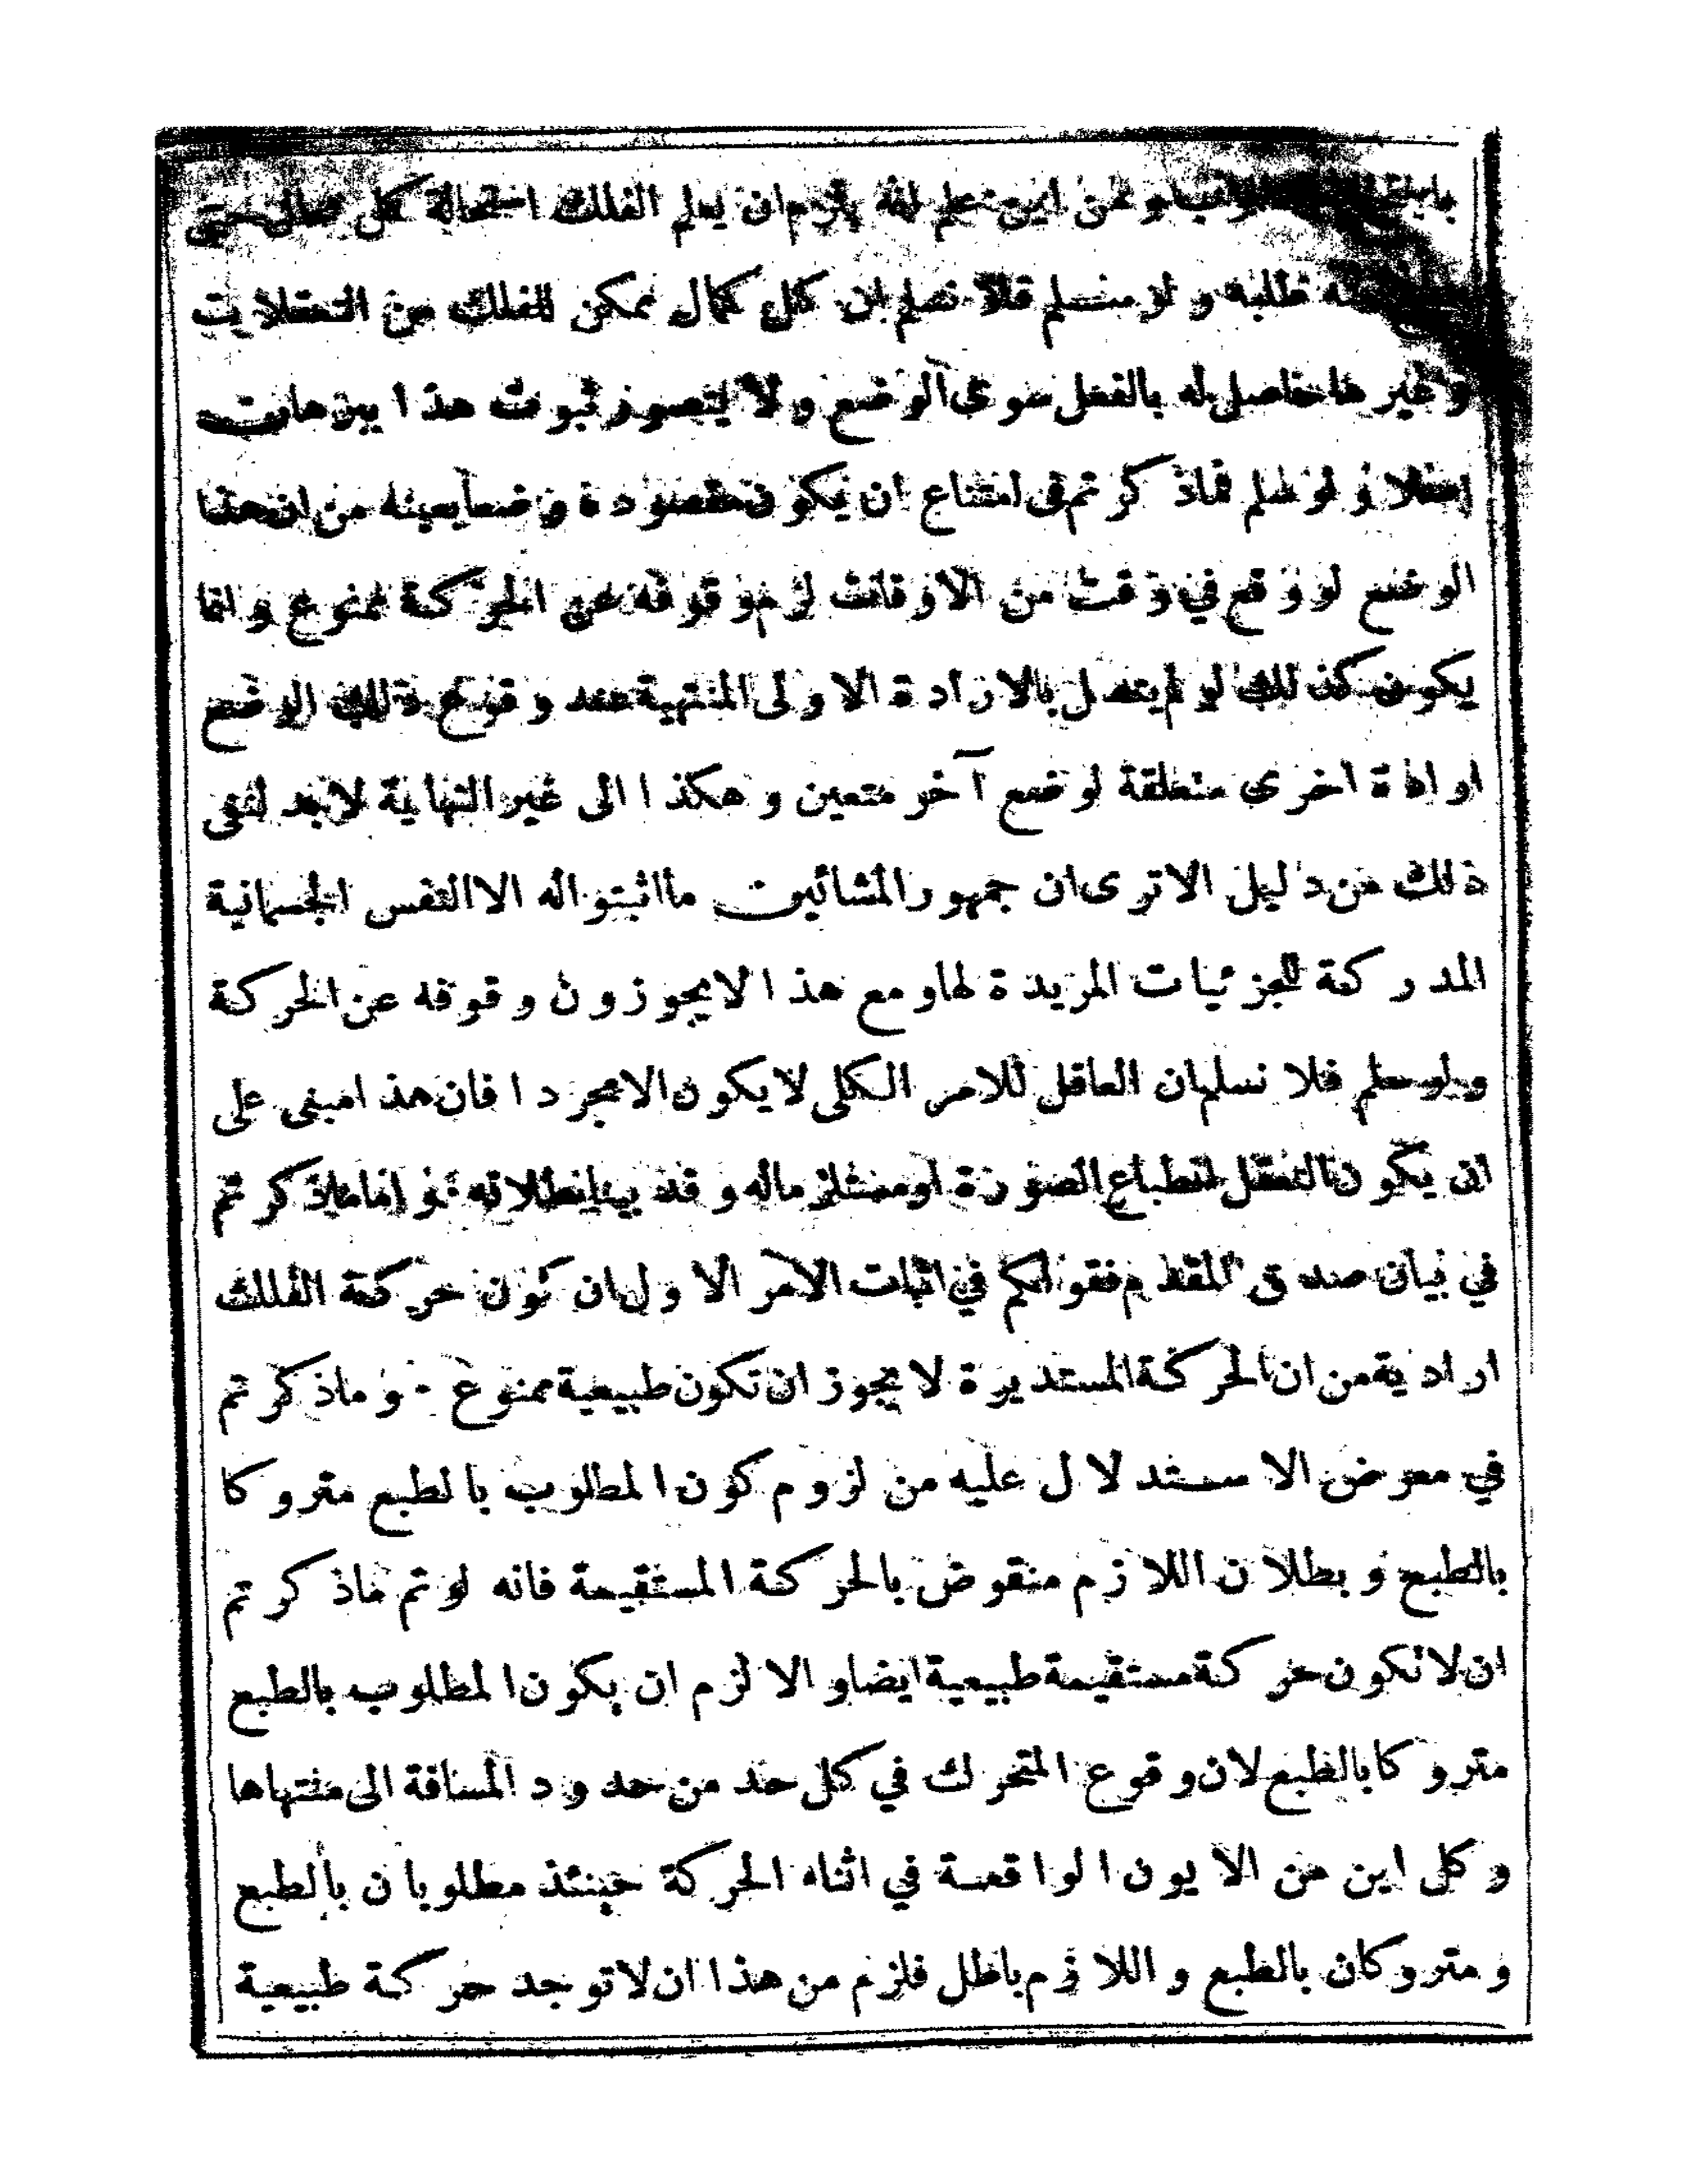 ومن اين علم انه يلزم ان يعلم الفلك استحالة كل محال حتى
طلبه ولو سلم فلا نسلم ان كل كمال يمكن للفلك من التعقلات
وغيرها حاصل له بالفعل سوى الوضع ولا يتصور ثبوت هذا ببرهان
اصلا ولو سلم فما ذكرتم في امتناع ان يكون مقصوده وضعا بعينه من ان هذا
الوضع لو وقع في وقت من الاوقات لزم وقوفه عن الحركة ممنوع وانما
يكون كذلك لو لم يتصل بالارادة الاولى المنتهية عند وقوع ذلك الوضع
ارادة اخرى متعلقة لوضع آخر متعين وهكذا الى غير النهاية لابد لنفى
ذلك من دليل الاترى ان جمهور المشائين ما اثبتوا له الا النفس الجسمانية
المدركة للجزئيات المريدة لها ومع هذا لا يجوزون وقوفه عن الحركة
ولو سلم فلا نسلم ان العاقل للامر الكلى لا يكون الا مجردا فان هذا مبنى على
ان يكون التعقل انطباع الصورة او مستلزما له وقد بينا بطلانه ٠ واما ما ذكرتم
في بيان صدق المقدم فقولكم في اثبات الامر الاول ان كون حركة الفلك
ارادية من ان الحركة المستديرة لا يجوز ان تكون طبيعية ممنوع ٠ وما ذكرتم
في معرض الاستدلال عليه من لزوم كون المطلوب بالطبع متروكا
بالطبع وبطلان اللازم منقوض بالحركة المستقيمة فانه لو تم ماذكرتم
ان لا تكون حركة مستقيمة طبيعية ايضا والا لزم ان يكون المطلوب بالطبع
متروكا بالطبع لان وقوع المتحرك في كل حد من حدود المسافة الى منتهاها
وكل اين من الايون الواقعة في اثناء الحركة حينئذ مطلوبان بالطبع
ومتروكان بالطبع واللازم باطل فلزم من هذا ان لا توجد حركة طبيعية